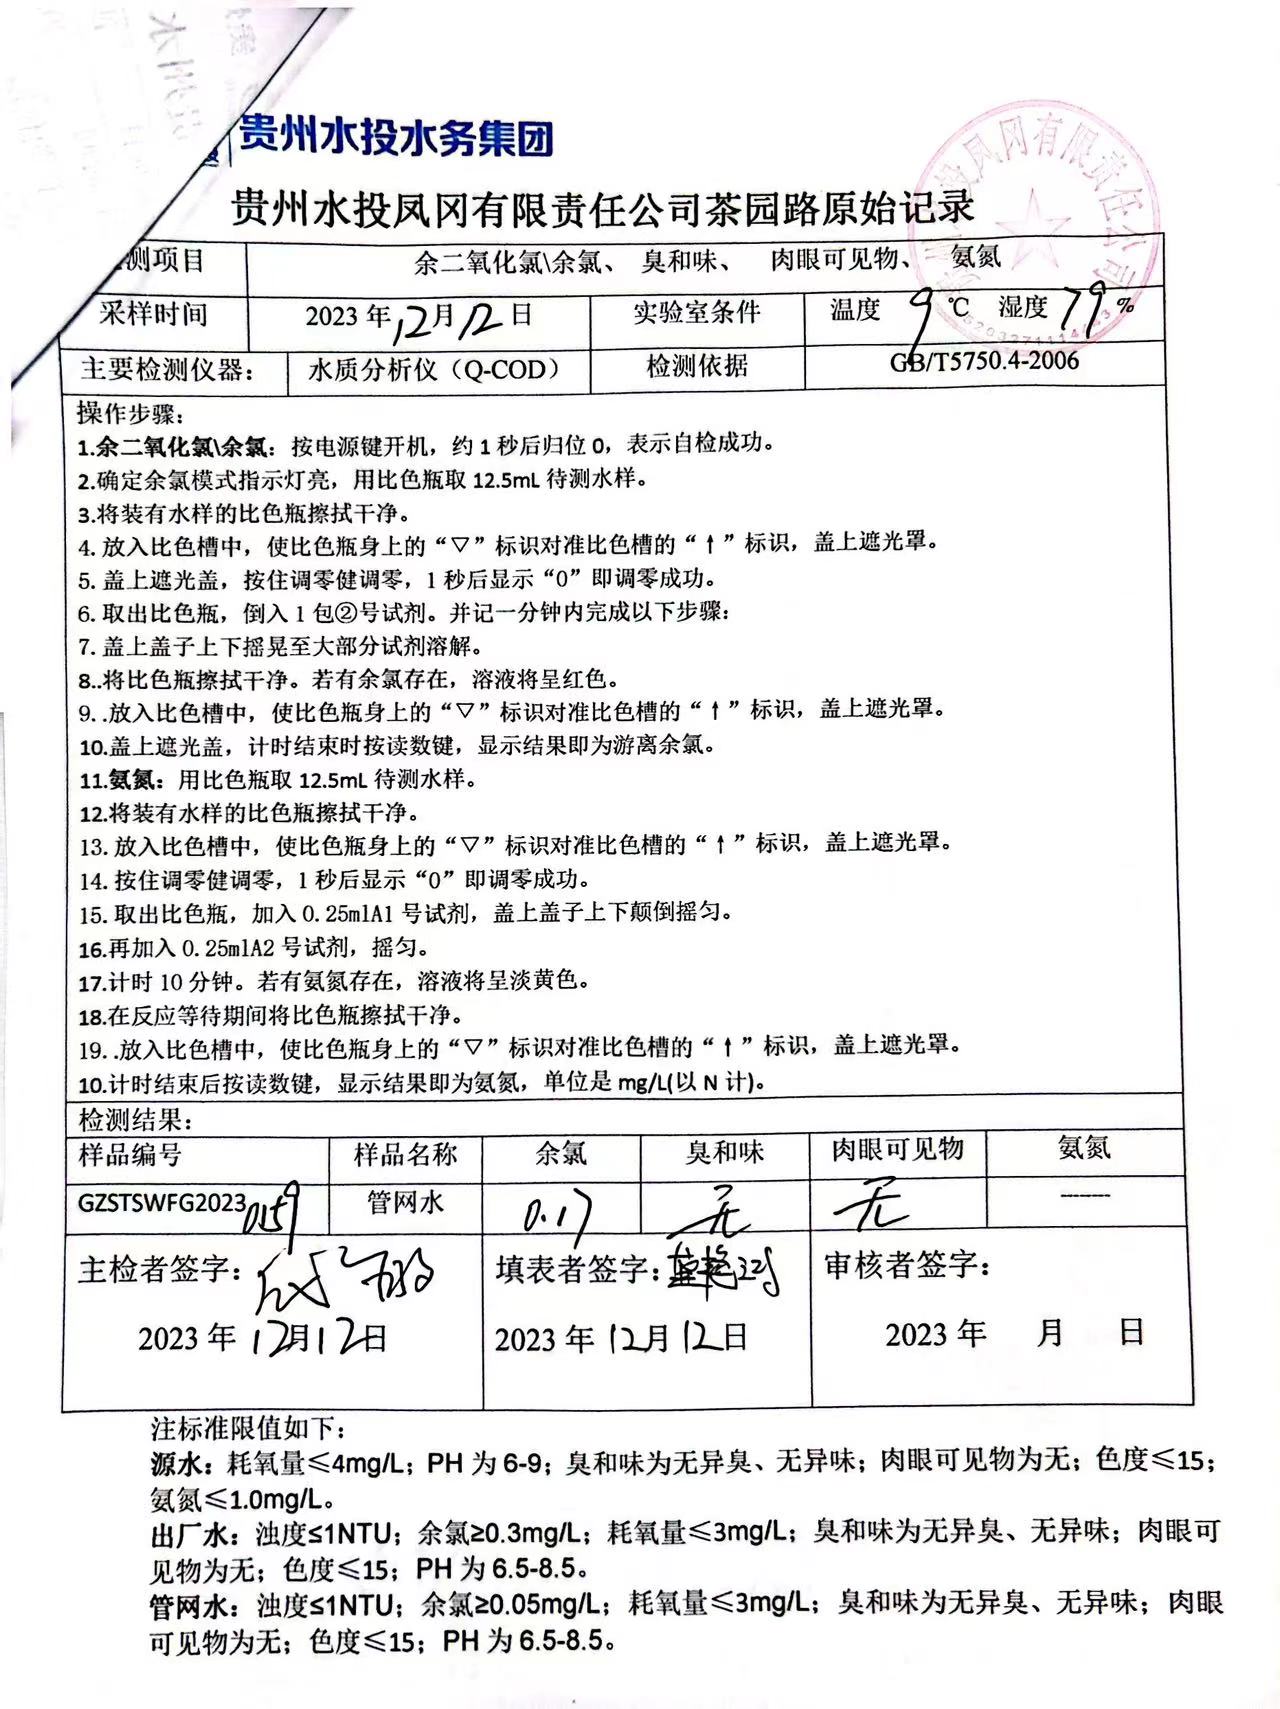 贵州水投水务集团
贵州水投凤冈有限责任公司茶园路原始记录
测项目 余二氧化氯\余氯、 臭和味、 肉眼可见物、 氨氮
采样时间 2023年12月12日 实验室条件 温度 9℃ 湿度 79%
主要检测仪器： 水质分析仪（Q-COD） 检测依据 GB/T5750.4-2006
操作步骤：
1.余二氧化氯\余氯：按电源键开机，约1秒后归位0，表示自检成功。
2.确定余氯模式指示灯亮，用比色瓶取12.5mL待测水样。
3.将装有水样的比色瓶擦拭干净。
4. 放入比色槽中，使比色瓶身上的“▽”标识对准比色槽的“↑”标识，盖上遮光罩。
5. 盖上遮光盖，按住调零健调零，1秒后显示“0”即调零成功。
6. 取出比色瓶，倒入1包②号试剂。并记一分钟内完成以下步骤：
7. 盖上盖子上下摇晃至大部分试剂溶解。
8..将比色瓶擦拭干净。若有余氯存在，溶液将呈红色。
9. .放入比色槽中，使比色瓶身上的“▽”标识对准比色槽的“↑”标识，盖上遮光罩。
10.盖上遮光盖，计时结束时按读数键，显示结果即为游离余氯。
11.氨氮：用比色瓶取12.5mL待测水样。
12.将装有水样的比色瓶擦拭干净。
13. 放入比色槽中，使比色瓶身上的“▽”标识对准比色槽的“↑”标识，盖上遮光罩。
14. 按住调零健调零，1秒后显示“0”即调零成功。
15. 取出比色瓶，加入0.25mlA1号试剂，盖上盖子上下颠倒摇匀。
16.再加入0.25mlA2号试剂，摇匀。
17.计时10分钟。若有氨氮存在，溶液将呈淡黄色。
18.在反应等待期间将比色瓶擦拭干净。
19. .放入比色槽中，使比色瓶身上的“▽”标识对准比色槽的“↑”标识，盖上遮光罩。
10.计时结束后按读数键，显示结果即为氨氮，单位是mg/L(以N计)。
检测结果：
样品编号 样品名称 余氯 臭和味 肉眼可见物 氨氮
GZSTSWFG20230159 管网水 0.17 无 无 -------
主检者签字： 填表者签字： 审核者签字：
2023年12月12日 2023年12月12日 2023年 月 日
注标准限值如下：
源水：耗氧量≤4mg/L；PH为6-9；臭和味为无异臭、无异味；肉眼可见物为无；色度≤15；
氨氮≤1.0mg/L。
出厂水：浊度≤1NTU；余氯≥0.3mg/L；耗氧量≤3mg/L；臭和味为无异臭、无异味；肉眼可
见物为无；色度≤15；PH为6.5-8.5。
管网水：浊度≤1NTU；余氯≥0.05mg/L；耗氧量≤3mg/L；臭和味为无异臭、无异味；肉眼
可见物为无；色度≤15；PH为6.5-8.5。